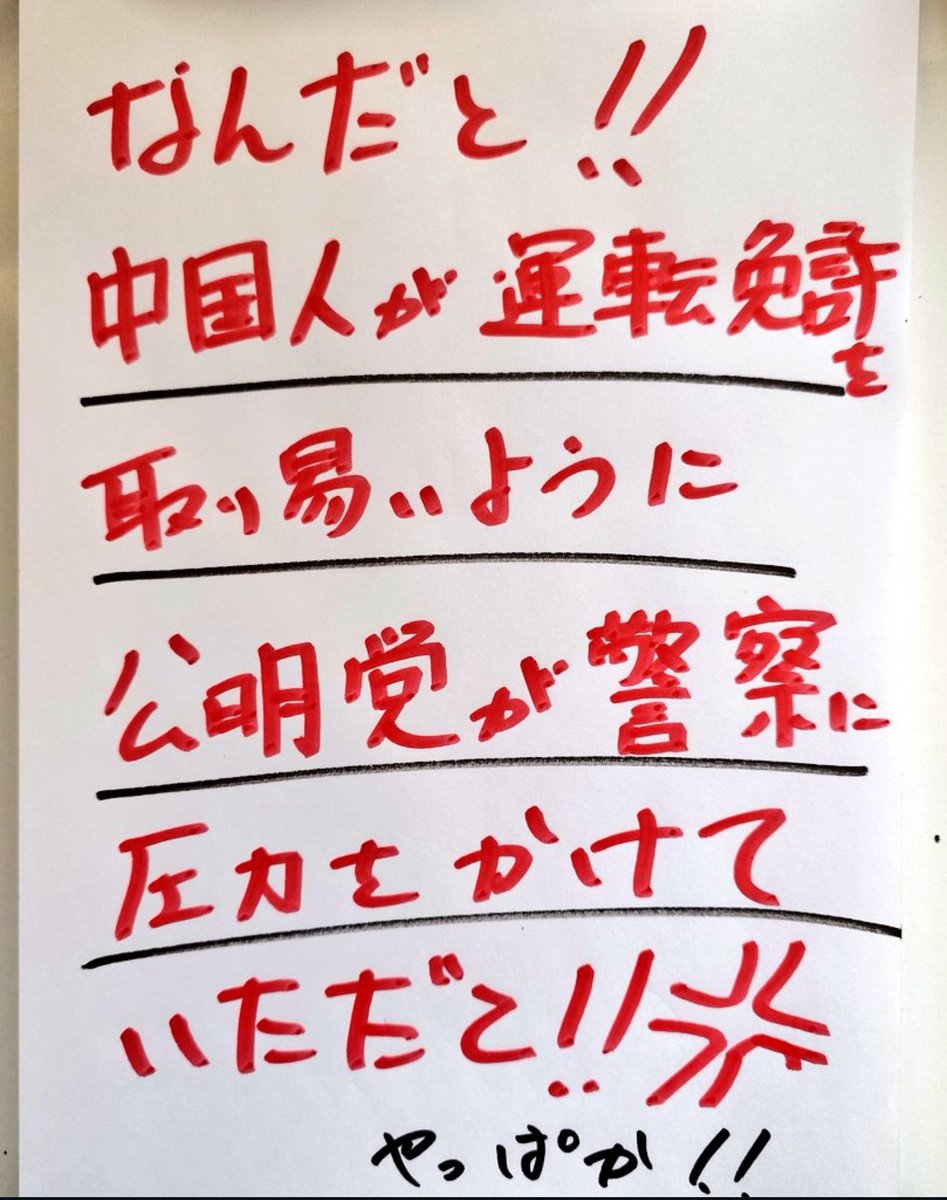 なんだと!!
中国人が運転免許を
取り易いように
公明党が警察に
圧力をかけて
いただと!!
やっぱか!!